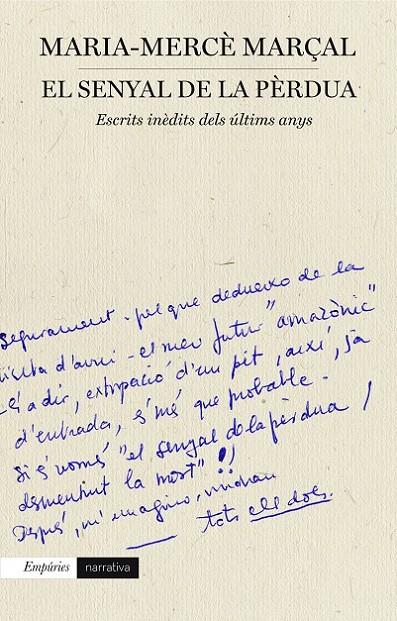 MARIA-MERCÈ MARÇAL
EL SENYAL DE LA PÈRDUA
Escrits inèdits dels últims anys
Segurament - pel que dedueixo de la
visita d'avui - el meu futur "amazònic"
- És a dir, extirpació d'un pit, així, ja
d'entrada, és més que probable -
Si és només "el senyal de la pèrdua /
desmentint la mort"!!
Després, m'imagino, vindran
tots ells dos.
Empúries narrativa